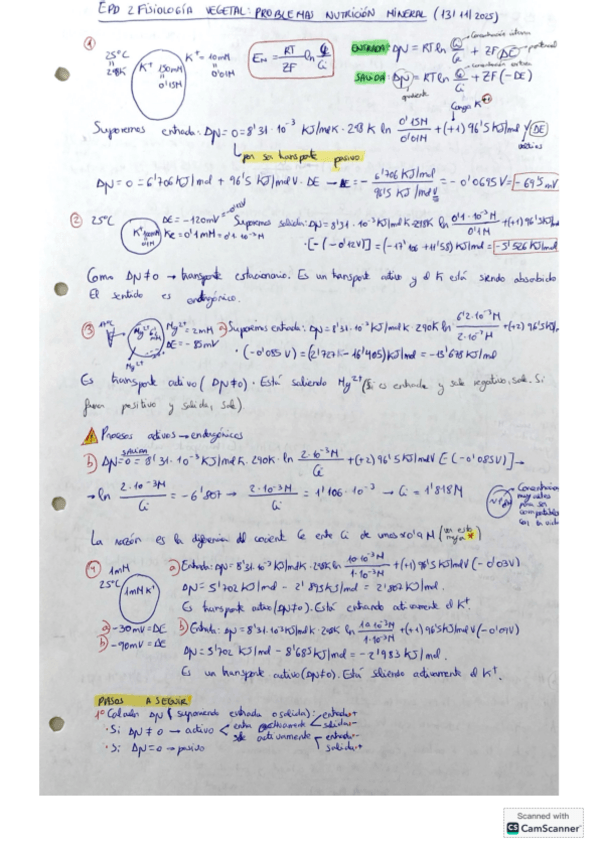 EPD 2 FISIOLOGÍA VEGETAL: PROBLEMAS NUTRICIÓN MINERAL (13/11/2025)
① 25ºC = 298K K⁺ 150mM = 0'15M K⁺ = 10mM = 0'01M
E_N = RT/ZF ln Ce/Ci
ENTRADA: ΔN = RT ln Ci/Ce + ZF ΔE → potencial
SALIDA: ΔN = RT ln Ce/Ci + ZF (-ΔE)
Carga K⁺
Suponemos entrada: ΔN = 0 = 8'31·10⁻³ KJ/molK · 298K ln 0'15M/0'01M + (+1) 96'5 KJ/molV ΔE
por ser transporte pasivo.
ΔN = 0 = 6'706 KJ/mol + 96'5 KJ/molV · ΔE → ΔE = - 6'706 KJ/mol / 96'5 KJ/molV = -0'0695V = -69'5 mV
② 25ºC K⁺ 100mM 0'1M ΔE = -120mV Ke = 0'1mM = 0'1·10⁻³M Suponemos salida: ΔN = 8'31·10⁻³ KJ/molK · 298K ln 0'1·10⁻³M/0'1M + (+1) 96'5KJ/mol
·[-(-0'12V)] = (-17'106 + 11'58) KJ/mol = -5'526 KJ/mol
Como ΔN ≠ 0 → transporte estacionario. Es un transporte activo y el K está siendo absorbido
El sentido es endergónico.
③ 17ºC Mg²⁺ Mg²⁺ = 2mM ΔE = -85mV a) Suponemos entrada: ΔN = 8'31·10⁻³ KJ/molK · 290K ln 6'2·10⁻³M/2·10⁻³M + (+2) 96'5 KJ/
·(-0'085 V) = (2'727 - 16'405) KJ/mol = -13'678 KJ/mol
Es transporte activo (ΔN≠0). Está saliendo Mg²⁺ (Si es entrada y sale negativo, sale. Si
fuera positivo y salida, sale).
Procesos activos → endergónicos
b) ΔN salida = 0 = 8'31·10⁻³ KJ/molK · 290K · ln 2·10⁻³M/Ci + (+2) 96'5 KJ/molV [-(-0'085V)] →
→ ln 2·10⁻³M/Ci = -6'807 → 2·10⁻³M/Ci = 1'106·10⁻³ → Ci = 1'818M
La razón es la diferencia del cociente Ce entre Ci de unos
④ 1mM 25ºC 1mM K⁺ a) Entrada: ΔN = 8'31·10⁻³ KJ/molK · 298K ln 10·10⁻³M/1·10⁻³M + (+1) 96'5 KJ/molV (-0'03V)
ΔN = 5'702 KJ/mol - 2'895 KJ/mol = 2'807 KJ/mol.
Es transporte activo (ΔN≠0). Está entrando activamente el K⁺.
a) -30mV = ΔE b) Entrada: ΔN = 8'31·10⁻³ KJ/molK · 298K ln 10·10⁻³M/1·10⁻³M + (+1) 96'5 KJ/molV (-0'09V)
b) -90mV = ΔE ΔN = 5'702 KJ/mol - 8'685 KJ/mol = -2'983 KJ/mol.
Es un transporte activo (ΔN≠0). Está saliendo activamente el K⁺.
PASOS A SEGUIR
1º Calcular ΔN (suponiendo entrada o salida):
·Si ΔN ≠ 0 → activo < entra activamente < entrada+ salida-
sale activamente < entrada- salida+
·Si ΔN = 0 → pasivo
Scanned with
CS CamScanner